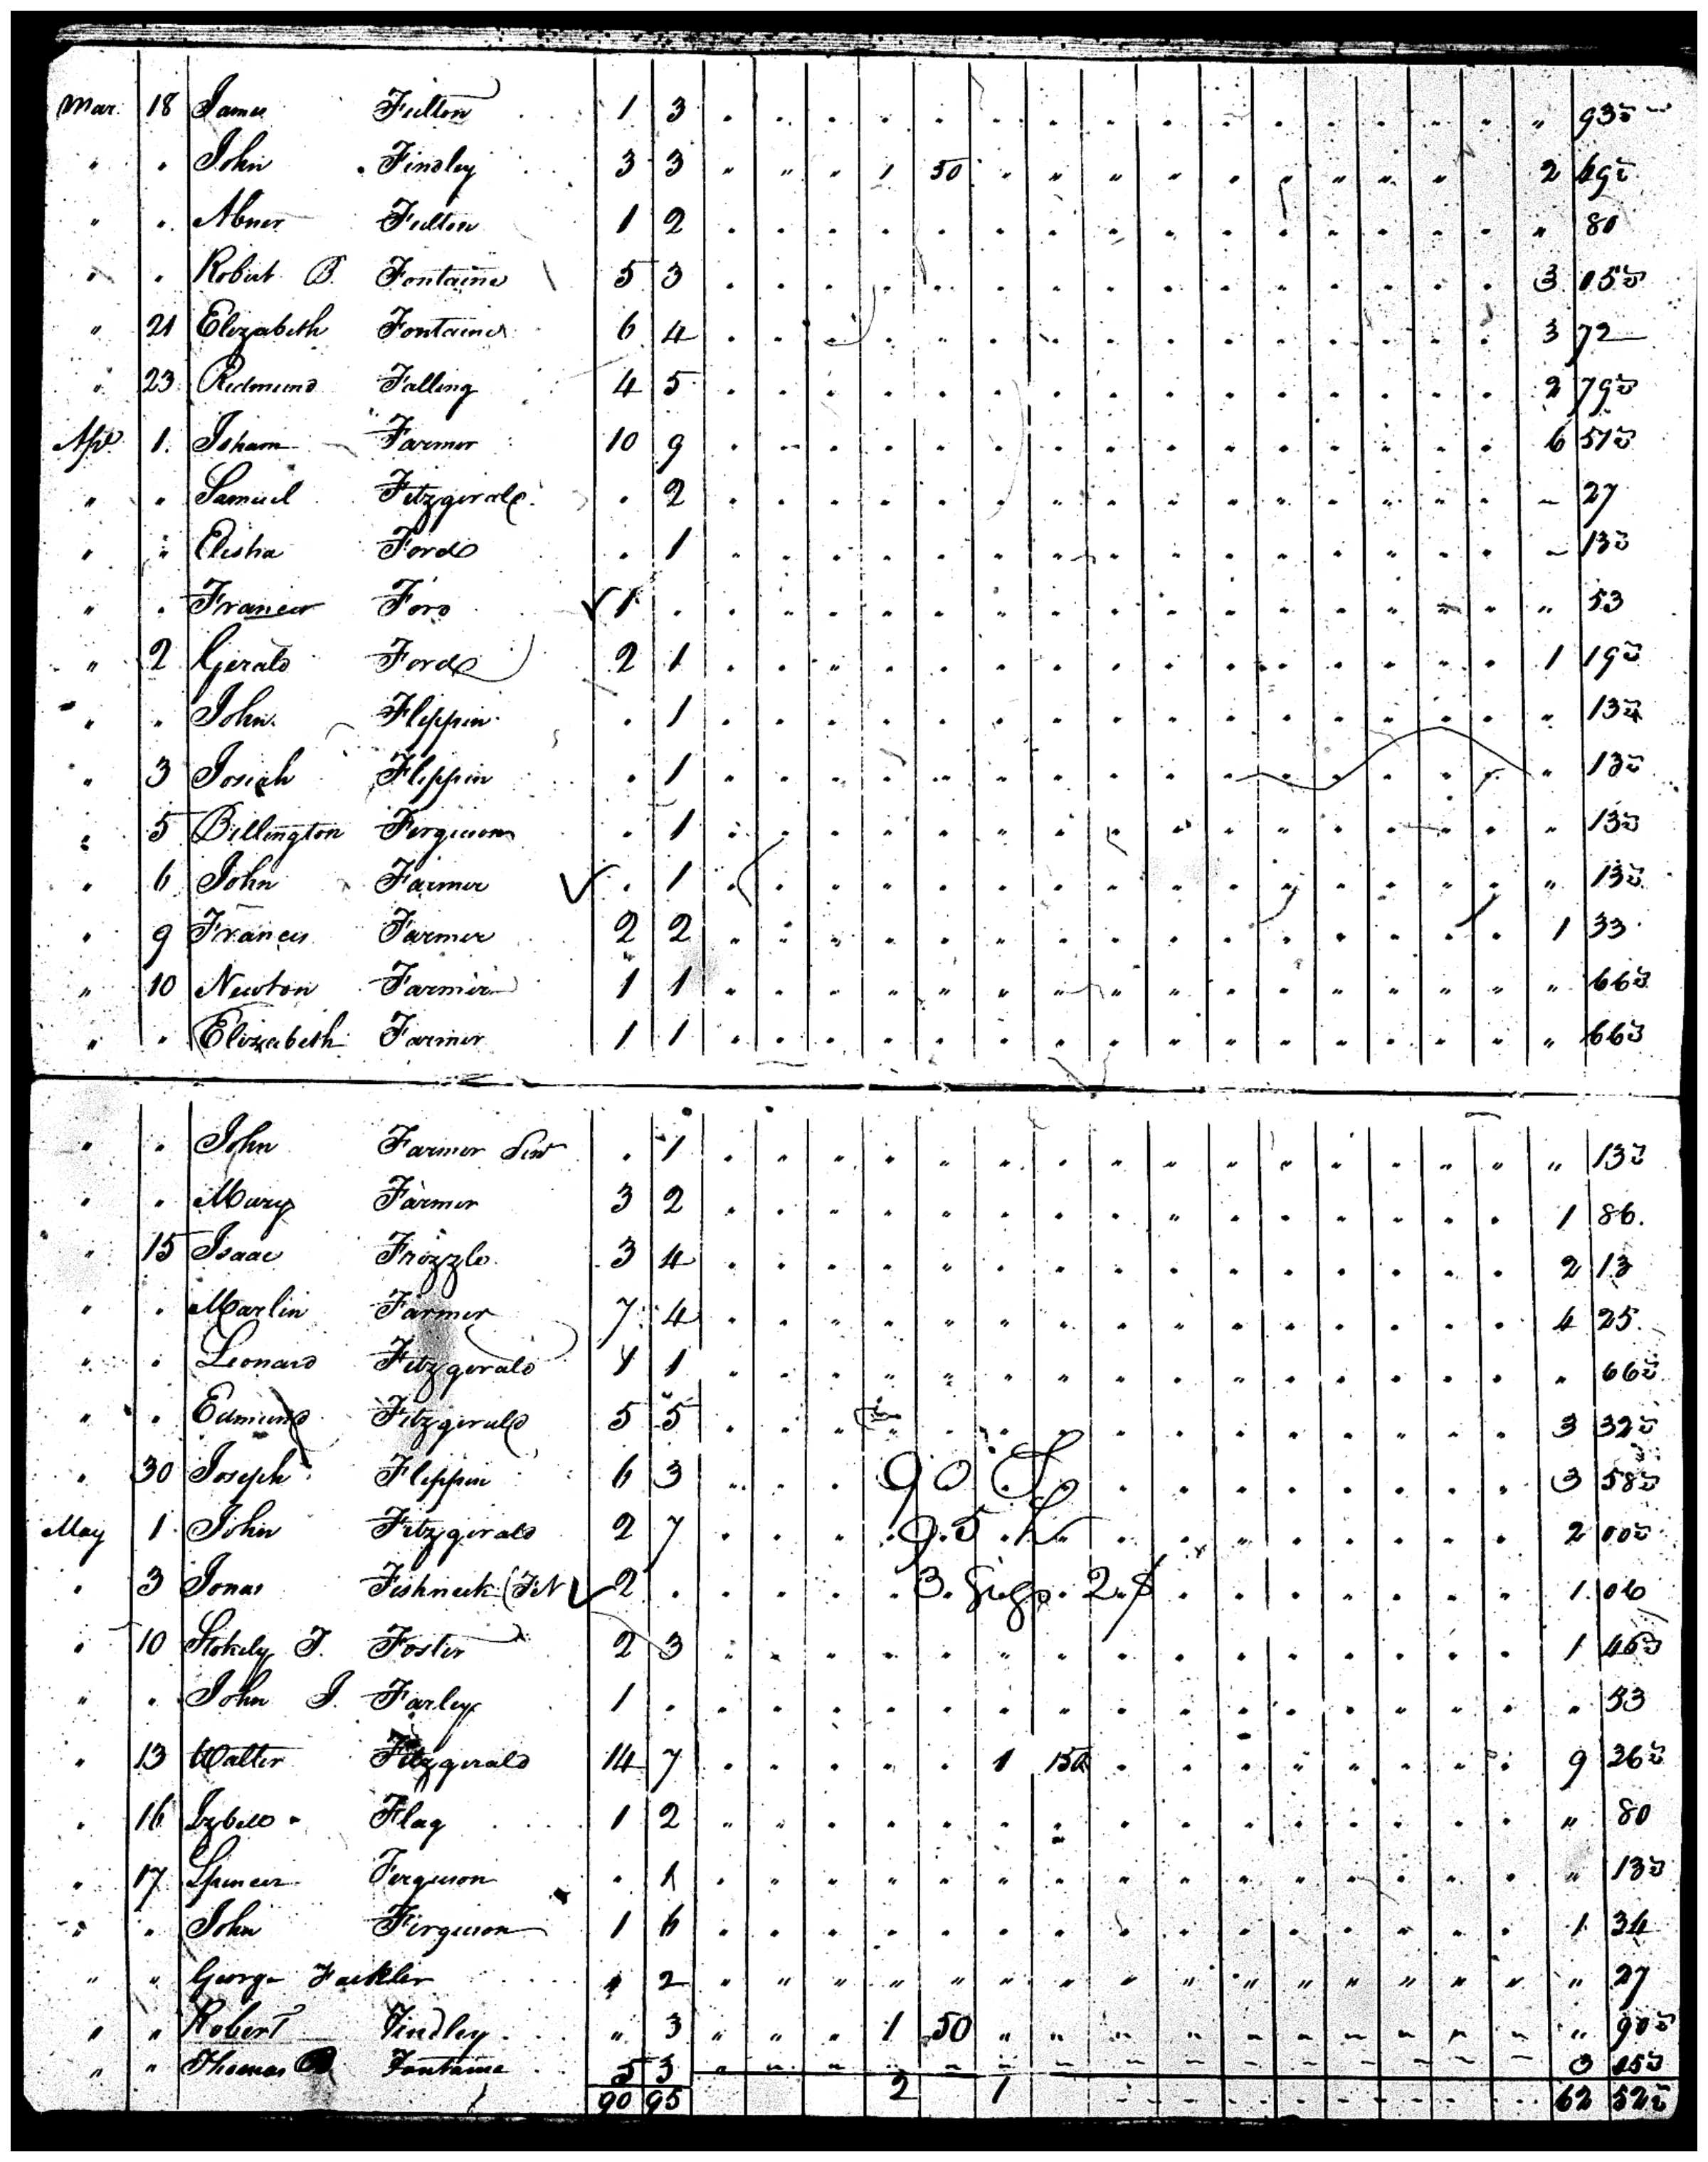 Mar. 18 James Fulton 1 3 " 93
" " John Findley 3 3 " " " 1 50 " " " " " " " " " 2 69
" " Abner Fulton 1 2 " 80
" " Robert B. Fontaine 5 3 3 05
" 21 Elizabeth Fontaine 6 4 3 72
" 23 Redmund Falling 4 5 2 79
Apl 1 Isham Farmer 10 9 6 51
" " Samuel Fitzgerald . 2 27
" " Elisha Ford . 1 13
" " Francis Ford 1 . " 53
" 2 Gerald Ford 2 1 1 19
" " John Flippin . 1 " 13
" 3 Josiah Flippin . 1 " 13
" 5 Billington Ferguson . 1 " 13
" 6 John Farmer . 1 " 13
" 9 Francis Farmer 2 2 1 33
" 10 Newton Farmer 1 1 " 66
" " Elizabeth Farmer 1 1 " 66
" " John Farmer Senr . 1 " 13
" " Mary Farmer 3 2 1 86.
" 15 Isaac Frizzle 3 4 2 13
" " Marlin Farmer 7 4 4 25
" " Leonard Fitzgerald 1 1 " 66
" " Edmund Fitzgerald 5 5 3 32
" 30 Joseph Flippin 6 3 90 3 58
May 1 John Fitzgerald 2 7 95 2 00
" 3 Jonas Fishneck 2 . 3 Gigs 2 1 06
" 10 Stokely T. Foster 2 3 1 46
" " John J. Farley 1 . " 53
" 13 Walter Fitzgerald 14 7 1 150 9 36
" 16 Izbell Flag 1 2 " 80
" 17 Spencer Ferguson . 1 " 13
" " John Ferguson 1 6 1 34
" " George Fackler " 2 " 27
" " Robert Findley " 3 " " " 1 50 " 90
" " Thomas Fontaine 5 3 3 05
90 95 2 1 62 52